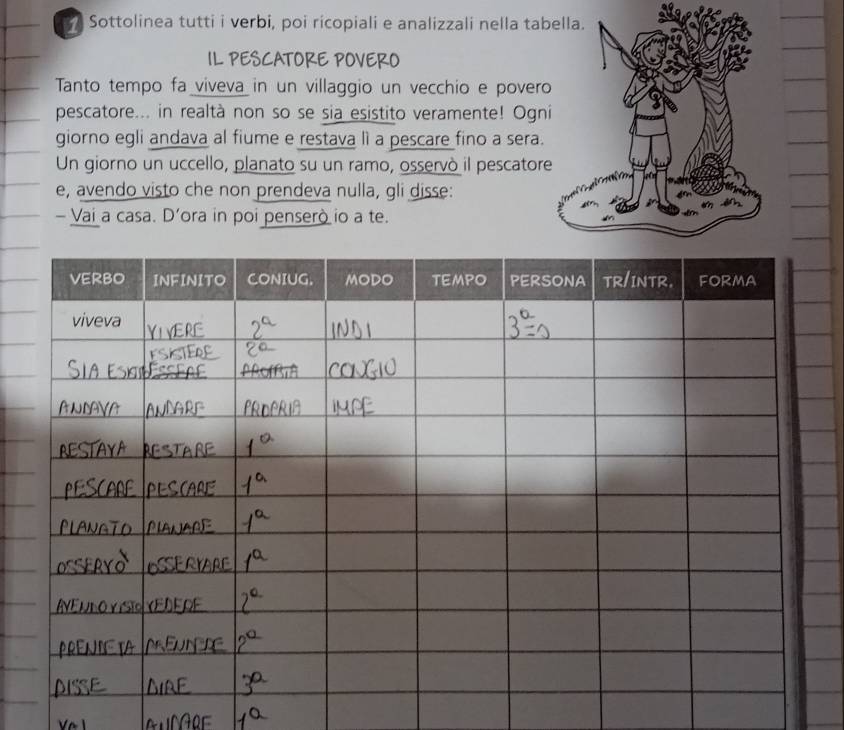 1 Sottolinea tutti i verbi, poi ricopiali e analizzali nella tabella.
IL PESCATORE POVERO
Tanto tempo fa viveva in un villaggio un vecchio e povero
pescatore... in realtà non so se sia esistito veramente! Ogni
giorno egli andava al fiume e restava lì a pescare fino a sera.
Un giorno un uccello, planato su un ramo, osservò il pescatore
e, avendo visto che non prendeva nulla, gli disse:
– Vai a casa. D'ora in poi penserò io a te.
VERBO INFINITO CONIUG. MODO TEMPO PERSONA TR/INTR. FORMA
viveva VIVERE 2a INDI 3a =s
ESISTERE 2a
SIA ESSERE PROPRIA CONGIU
ANDAVA ANDARE PROPRIA IMPE
RESTAVA RESTARE 1a
PESCARE PESCARE 1a
PLANATO PLANARE 1a
OSSERVÒ OSSERVARE 1a
AVENDO VISTO VEDERE 2a
PRENDEVA PRENDERE 2a
DISSE DIRE 3a
VAI ANDARE 1a